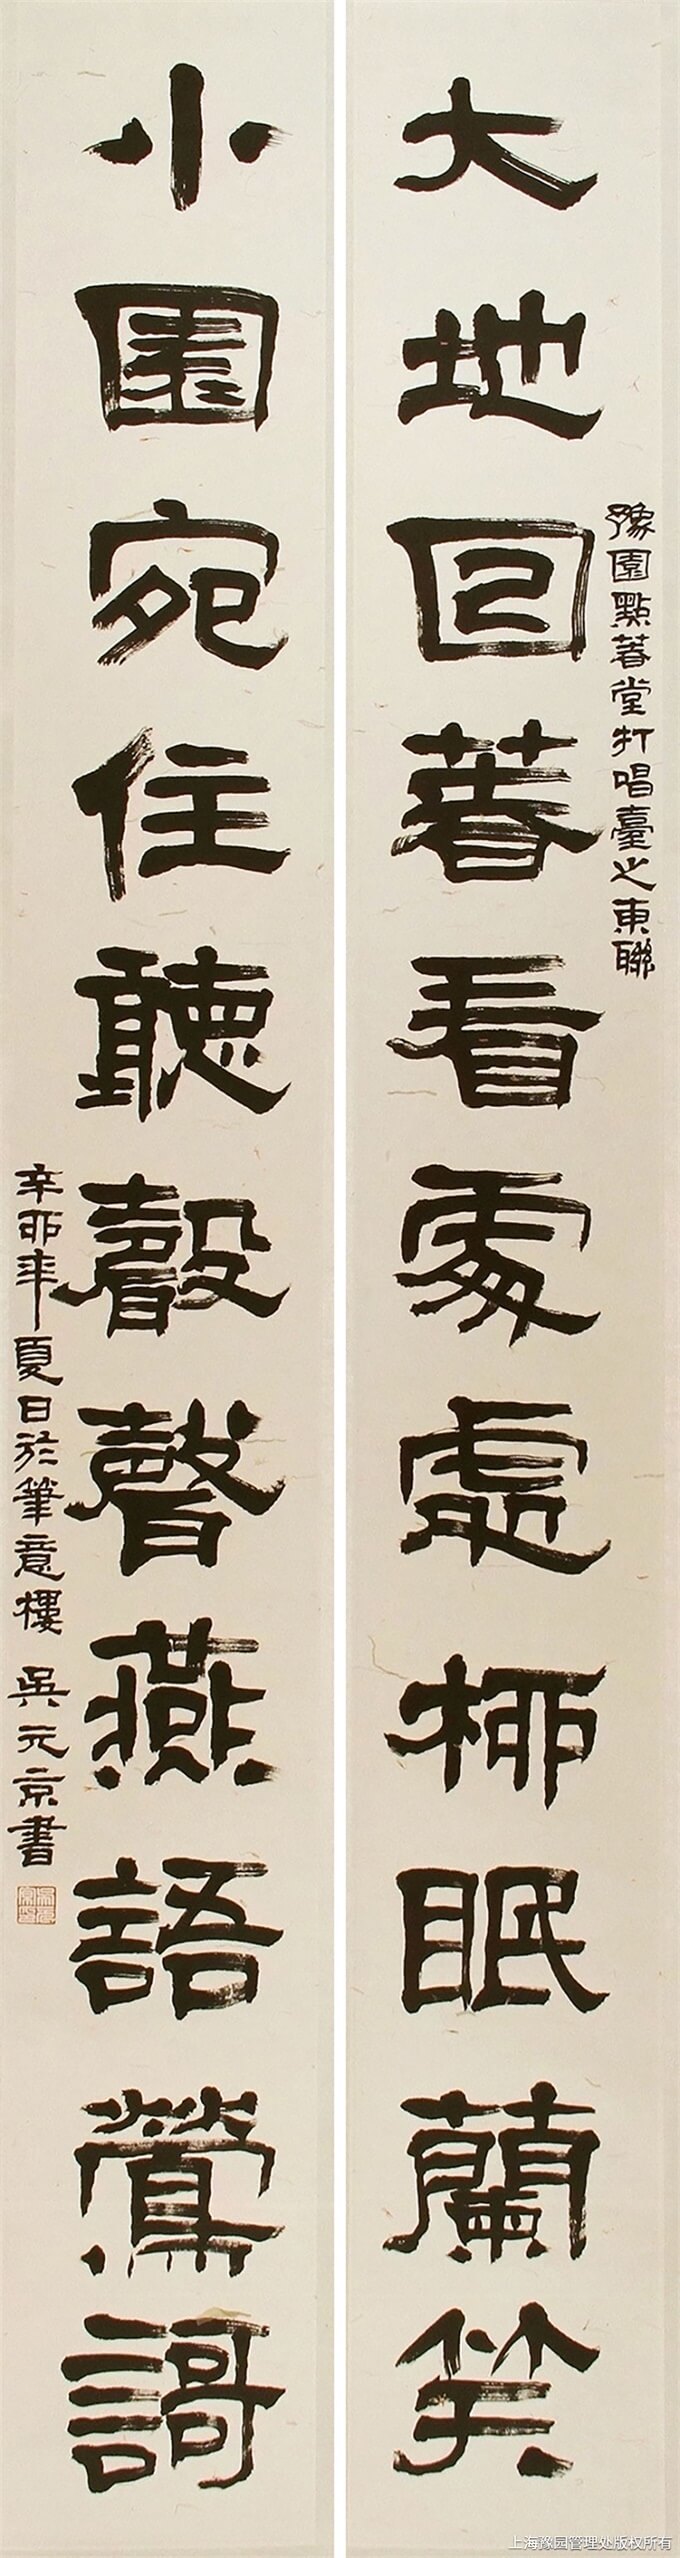 豫園點萅堂打唱臺之東聯
大地回萅看處處柳眠蘭笑
小園宛住聽聲聲燕語鶯謌
辛卯年夏日於筆意樓 吳元京書
上海豫园管理处版权所有